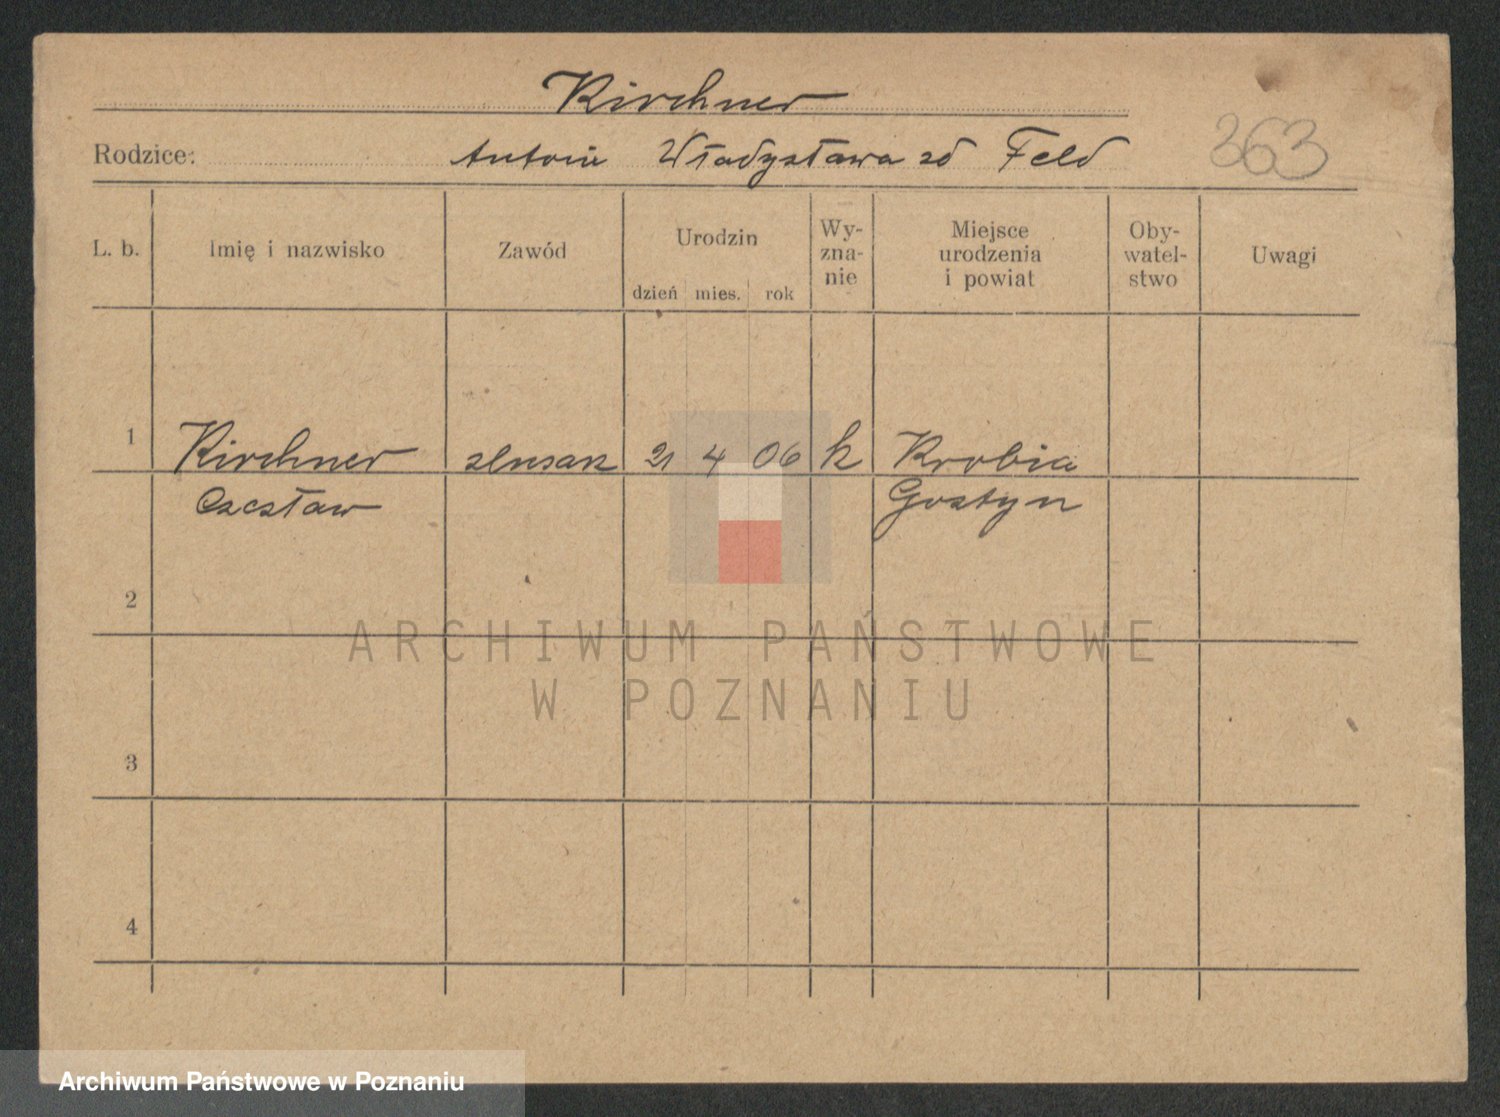 Kirchner
Rodzice: Antoni Władysława zd Feld
363
L. b. Imię i nazwisko Zawód Urodzin dzień mies. rok Wy-zna-nie Miejsce urodzenia i powiat Oby-watel-stwo Uwagi
1 Kirchner ślusarz 21 4 06 k Krobia
Czesław Gostyn
2
ARCHIWUM PAŃSTWOWE
W POZNANIU
3
4
Archiwum Państwowe w Poznaniu